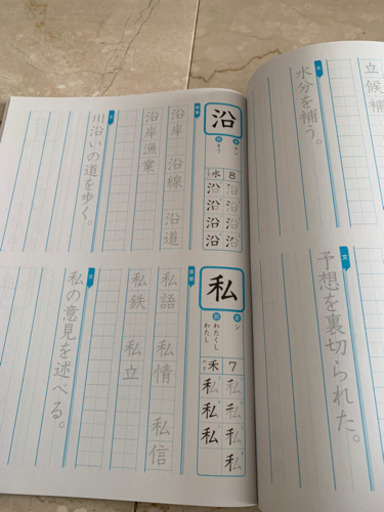 立候補
文
水分を補う。
文
予想を裏切られた。
沿
エン
そう
8
水
沿
沿
沿
沿
沿
沿
沿
沿
沿岸 沿線 沿道
沿岸漁業
川沿いの道を歩く。
私
シ
わたくし
わたし
7
禾
私
私
私
私
私
私
私語 私情 私信
私鉄 私立
文
私の意見を述べる。